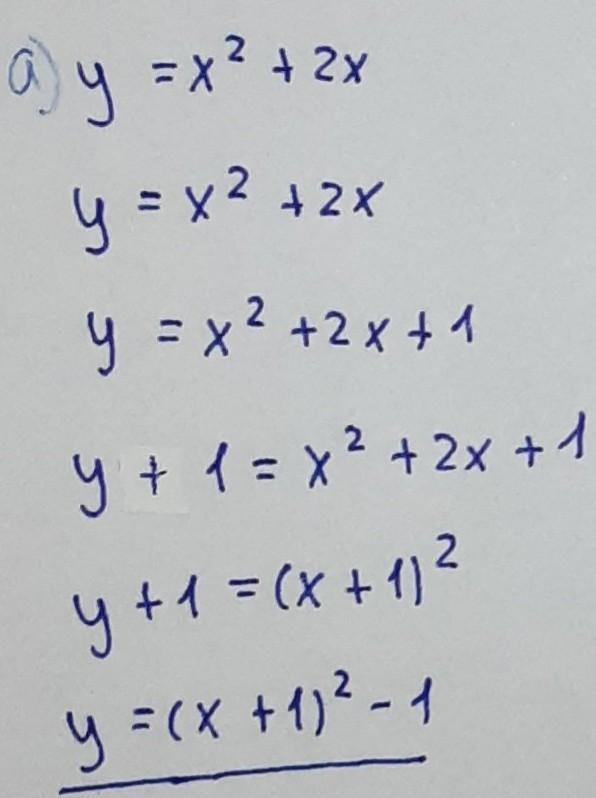 a) y = x² + 2x
y = x² + 2x
y = x² + 2x + 1
y + 1 = x² + 2x + 1
y + 1 = (x + 1)²
y = (x + 1)² - 1